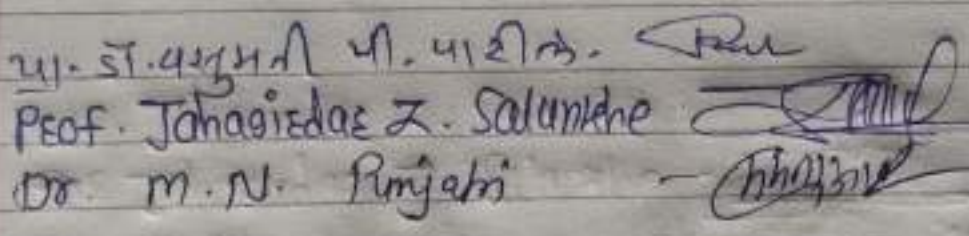 પ્રા. ડૉ. વસુમતી પી. પાટીલ.
Prof. Jahagirdar Z. Salunkhe
Dr. M.N. Punjabi -